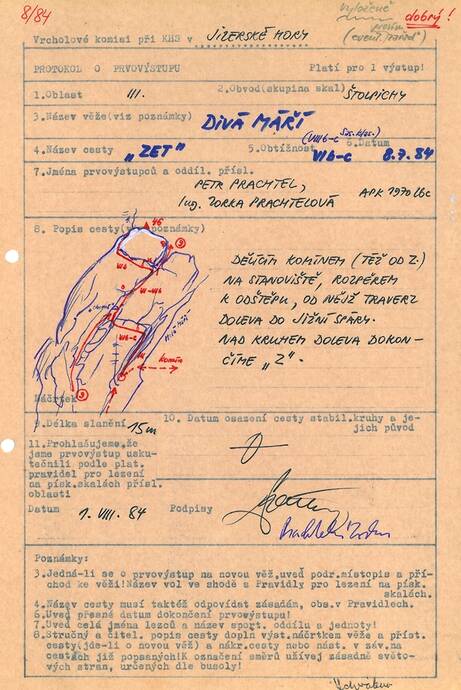 8/84
dobrý!
Vrcholové komisi při KHS v JIZERSKÉ HORY
PROTOKOL O PRVOVÝSTUPU Platí pro 1 výstup!
1.Oblast III. 2.Obvod(skupina skal) ŠTOLPICHY
3.Název věže(viz poznámky) DIVÁ MÁŘÍ
4.Název cesty "ZET" 5.Obtížnost VIb-c 6.Datum 8.7.84
7.Jména prvovýstupců a oddíl. přísl.
PETR PRACHTEL,
Ing. ZORKA PRACHTELOVÁ
8. Popis cesty(viz poznámky)
DĚLÍCÍM KOMÍNEM (TÉŽ OD Z.)
NA STANOVIŠTĚ, ROZPĚREM
K ODŠTĚPU, OD NĚJŽ TRAVERZ
DOLEVA DO JIŽNÍ SPÁRY.
NAD KRUHEM DOLEVA DOKON-
ČÍME "Z".
VIb
VIb-c
komín
3
3
Náčrtek
9.Délka slanění 15m
10. Datum osazení cesty stabil.kruhy a je-
jich původ
11.Prohlašujeme,že
jsme prvovýstup usku-
tečnili podle plat.
pravidel pro lezení
na písk.skalách přísl.
oblasti
Datum 1. VIII. 84 Podpisy
Poznámky:
3.Jedná-li se o prvovýstup na novou věž,uveď podr.místopis a pří-
chod ke věži!Název vol ve shodě s Pravidly pro lezení na písk.
skalách.
4.Název cesty musí taktéž odpovídat zásadám, obs.v Pravidlech.
6.Uveď přesné datum dokončení prvovýstupu!
7.Uveď celá jména lezců a název sport. oddílu a jednoty!
8.Stručný a čitel. popis cesty doplň výst.náčrtkem věže a příst.
cesty(jde-li o novou věž) a nákr.cesty nebo nást. v záv.na
cestách již popsaných!K označení směrů užívej zásadně světo-
vých stran, určených dle busoly!